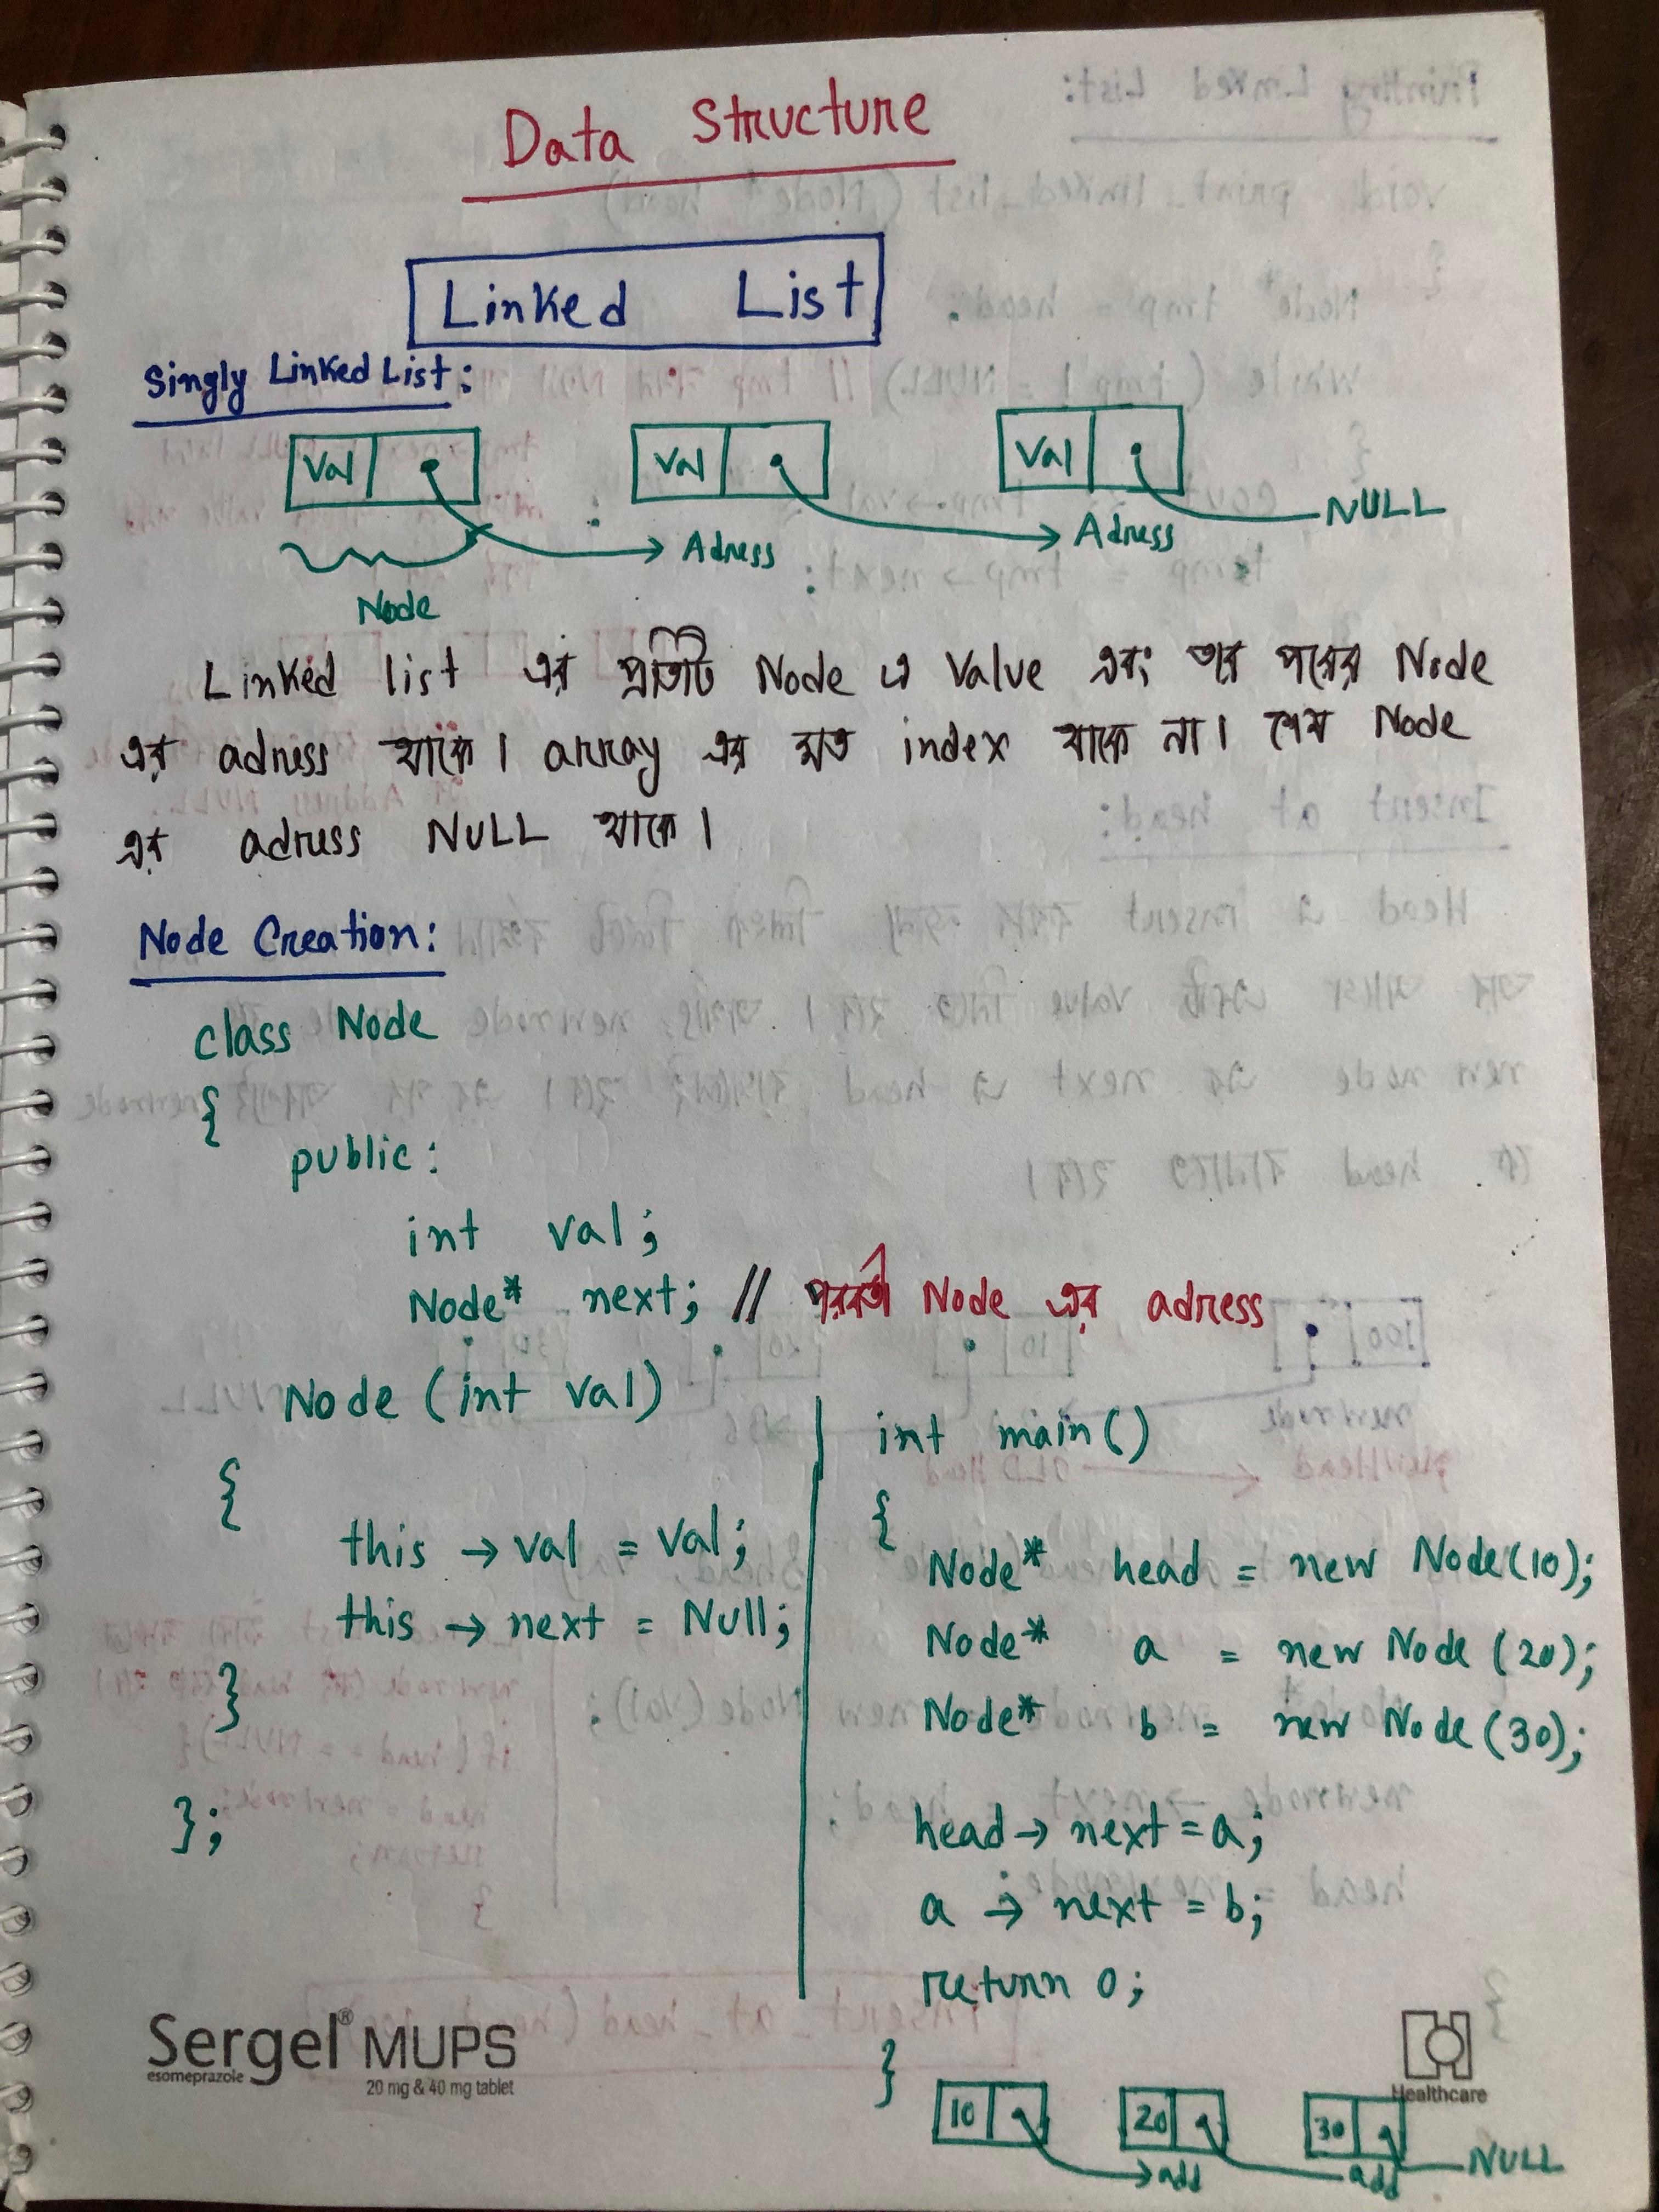 Data Structure
Linked List
Singly Linked List:
Val Val Val
NULL
Adress Adress
Node
Linked list এর প্রতিটি Node এ Value এবং তার পরের Node
এর adress থাকে। array এর মত index থাকে না। শেষ Node
এর adress NULL থাকে।
Node Creation:
class Node
{
public:
int val;
Node* next; // পরবর্তী Node এর adress
Node (int val)
{
this → val = val;
this → next = Null;
}
};
int main()
{
Node* head = new Node(10);
Node* a = new Node (20);
Node* b = new Node (30);
head → next = a;
a → next = b;
return 0;
}
10 20 30
add add NULL
Sergel® MUPS
esomeprazole
20 mg & 40 mg tablet
Healthcare